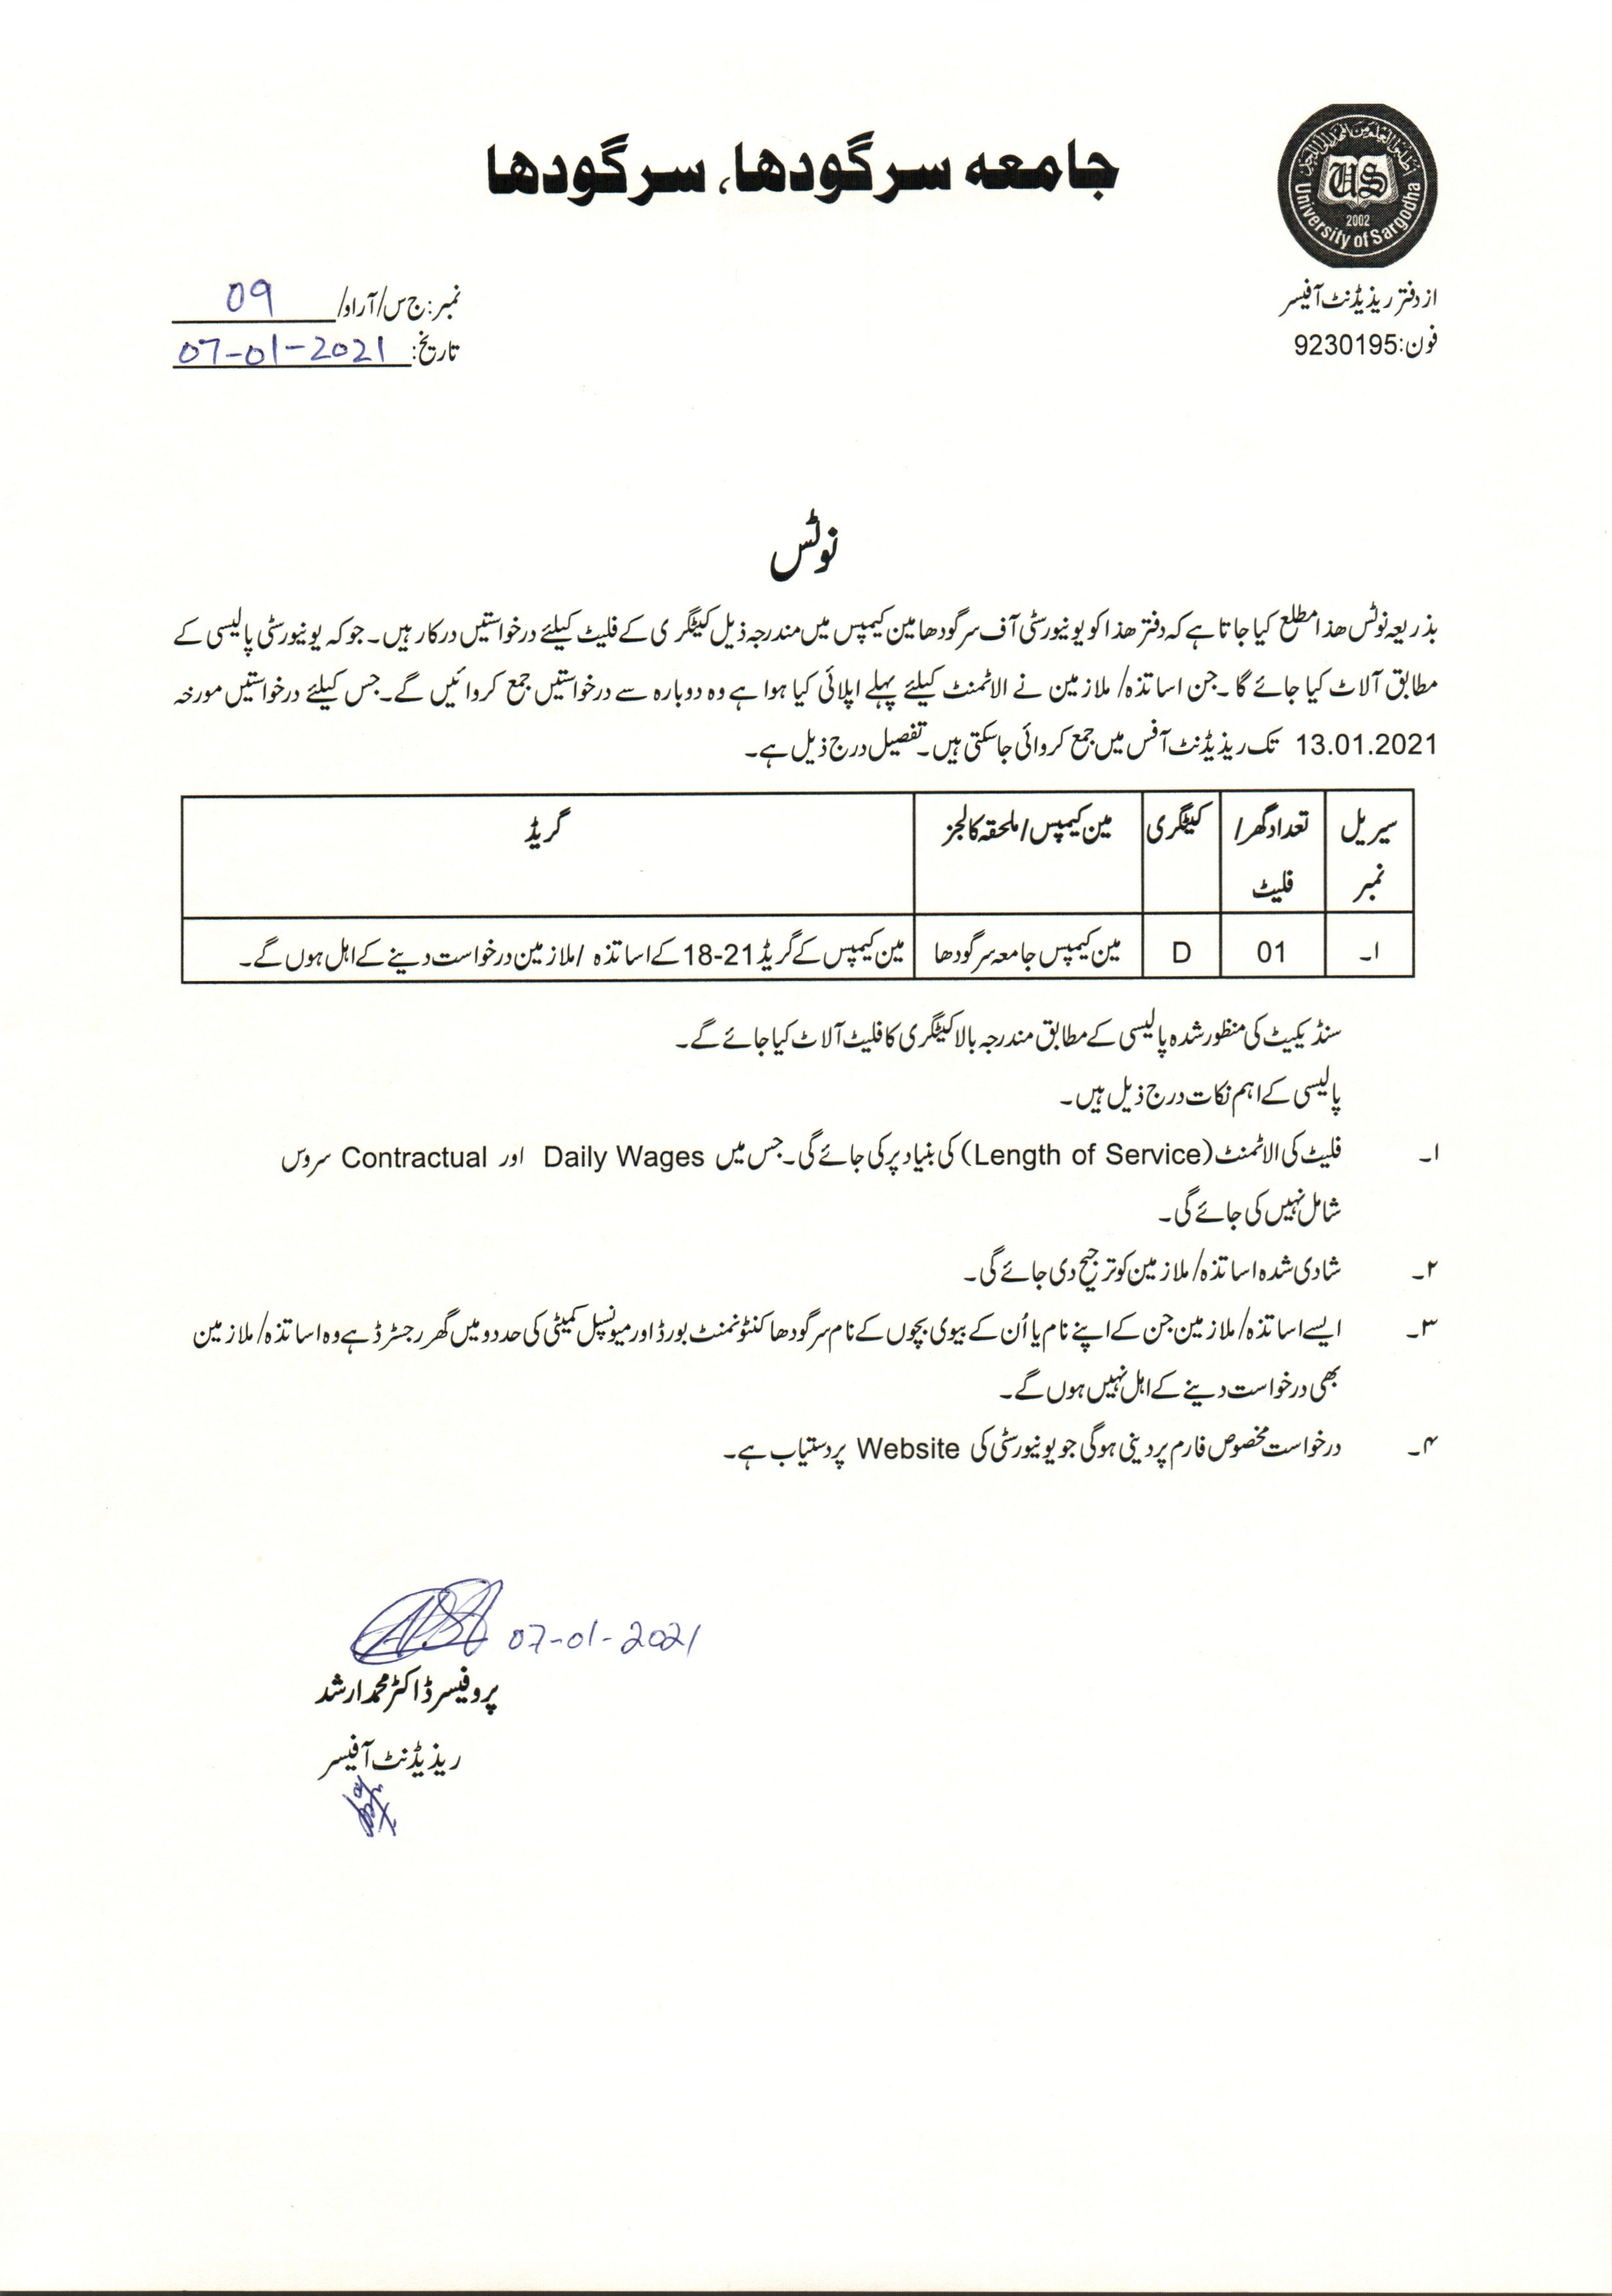 جامعہ سرگودھا، سرگودھا
University of Sargodha
US
2002
از دفتر ریذیڈنٹ آفیسر
فون:9230195
نمبر:ج س/آر او/ 09
تاریخ: 07-01-2021
نوٹس
بذریعہ نوٹس ھذا مطلع کیا جاتا ہے کہ دفتر ھذا کو یونیورسٹی آف سرگودھا مین کیمپس میں مندرجہ ذیل کیٹگری کے فلیٹ کیلئے درخواستیں درکار ہیں۔ جو کہ یونیورسٹی پالیسی کے
مطابق آلاٹ کیا جائے گا ۔ جن اساتذہ/ ملازمین نے الاٹمنٹ کیلئے پہلے اپلائی کیا ہوا ہے وہ دوبارہ سے درخواستیں جمع کروائیں گے۔ جس کیلئے درخواستیں مورخہ
13.01.2021 تک ریذیڈنٹ آفس میں جمع کروائی جاسکتی ہیں۔ تفصیل درج ذیل ہے۔
سیریل نمبر | تعداد گھر/ فلیٹ | کیٹگری | مین کیمپس/ملحقہ کالجز | گریڈ
۱۔ | 01 | D | مین کیمپس جامعہ سرگودھا | مین کیمپس کے گریڈ 21-18 کے اساتذہ /ملازمین درخواست دینے کے اہل ہوں گے۔
سنڈیکیٹ کی منظور شدہ پالیسی کے مطابق مندرجہ بالا کیٹگری کا فلیٹ آلاٹ کیا جائے گے۔
پالیسی کے اہم نکات درج ذیل ہیں۔
۱۔ فلیٹ کی الاٹمنٹ (Length of Service) کی بنیاد پر کی جائے گی۔ جس میں Daily Wages اور Contractual سروس
شامل نہیں کی جائے گی۔
۲۔ شادی شدہ اساتذہ/ملازمین کو ترجیح دی جائے گی۔
۳۔ ایسے اساتذہ/ملازمین جن کے اپنے نام یا اُن کے بیوی بچوں کے نام سرگودھا کنٹونمنٹ بورڈ اور میونسپل کمیٹی کی حددو میں گھر رجسٹرڈ ہے وہ اساتذہ/ملازمین
بھی درخواست دینے کے اہل نہیں ہوں گے۔
۴۔ درخواست مخصوص فارم پر دینی ہوگی جو یونیورسٹی کی Website پر دستیاب ہے۔
07-01-2021
پروفیسر ڈاکٹر محمد ارشد
ریذیڈنٹ آفیسر